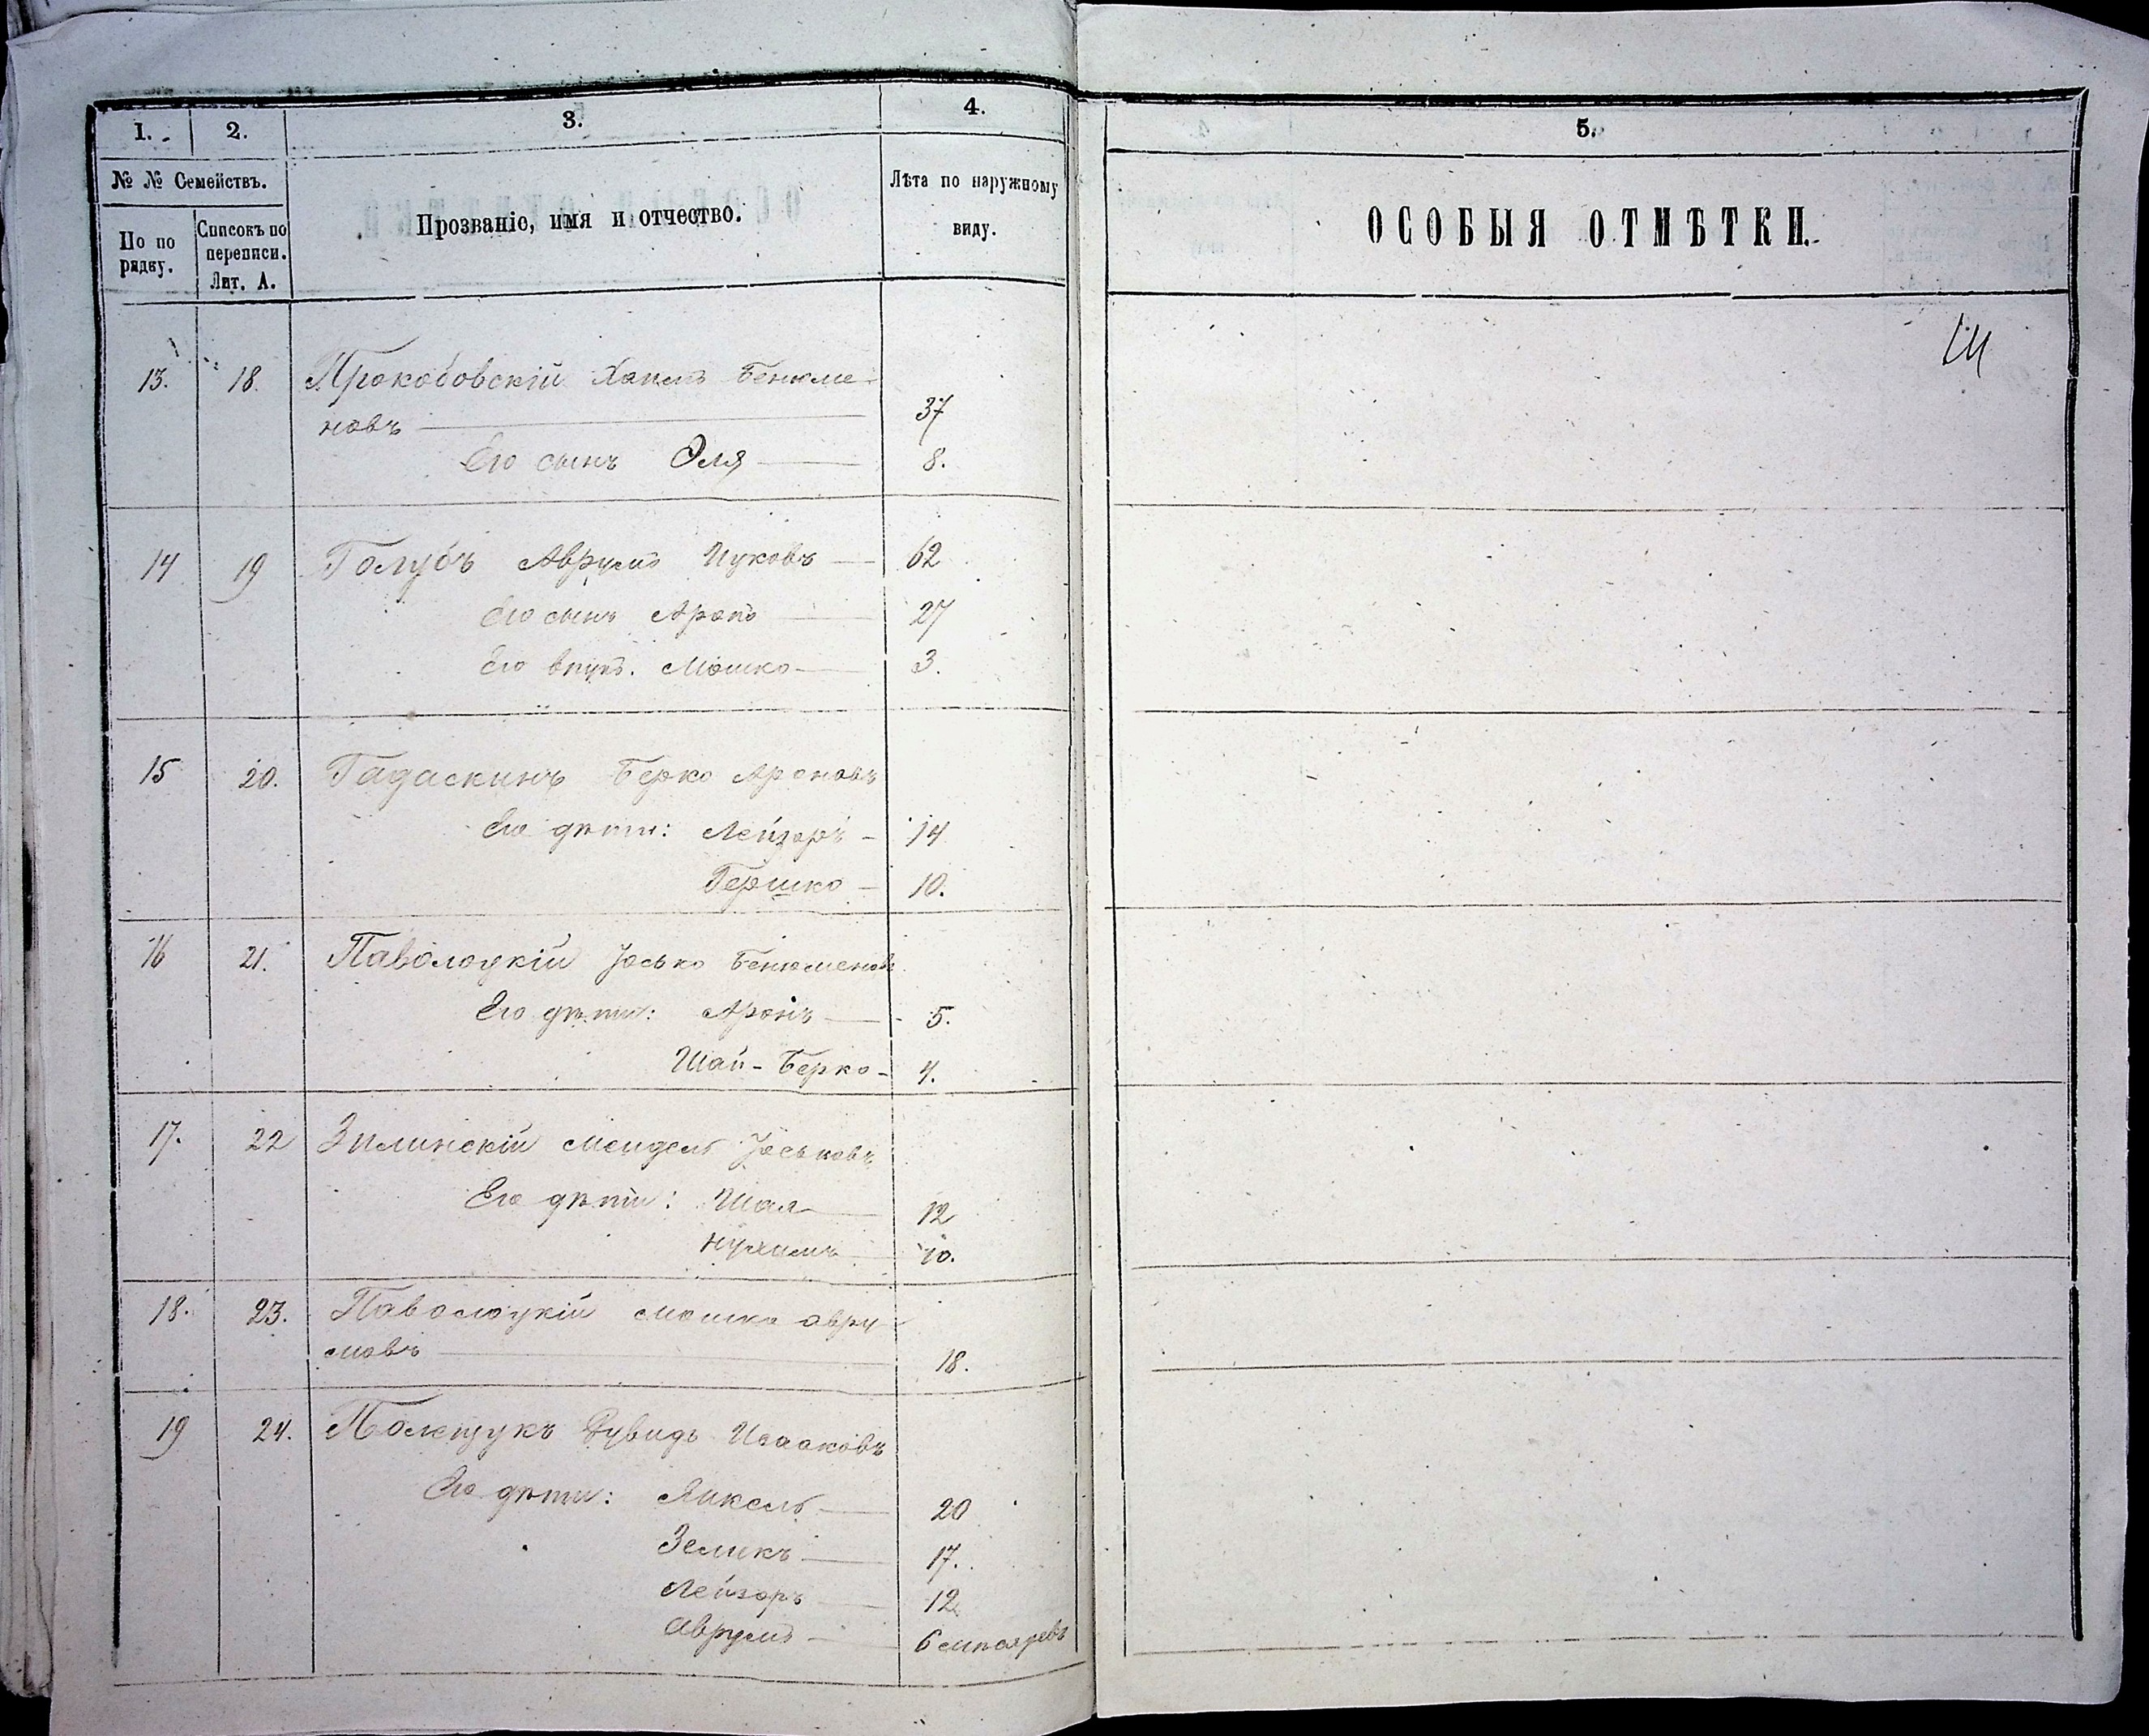 1. 2. 3. 4.
№ № Семействъ.
По по рядку.
Списокъ по переписи. Лит. А.
Прозваніе, имя и отчество.
Лѣта по наружному виду.
13. 18. Прокобовскій Хаимъ Бенюме-
новъ 37
Его сынъ Эля 8.
14 19 Голубъ Аврумъ Ицковъ 62
Его сынъ Аронъ 27
Его внукъ. Мошко 3.
15 20. Гадаскинъ Берко Ароновъ
Его дѣти: Лейзоръ 14
Гершко 10.
16 21. Паволоцкій Іосько Бенюменовъ
Его дѣти: Аронъ 5.
Шай-Берко 4.
17. 22 Зилинскій Мендель Іоськовъ
Его дѣти: Шая 12
Нухимъ 10.
18. 23. Паволоцкій Мошко Авру
мовъ 18.
19 24. Полещукъ Дувидъ Исааковъ
Его дѣти: Янкель 20
Зеликъ 17.
Лейзоръ 12
Аврумъ 6
5.
ОСОБЫЯ ОТМѢТКИ.